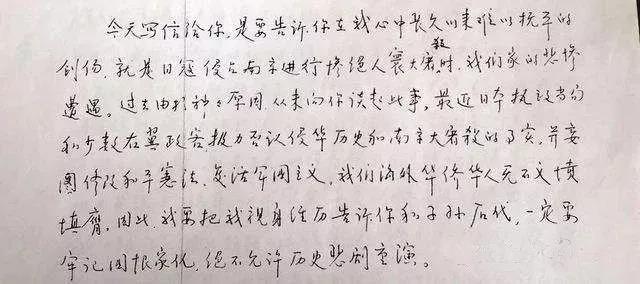 今天写信给你,是要告诉你在我心中长久以来难以抚平的
创伤,就是日寇侵占南京进行惨绝人寰大屠杀时,我们家的悲惨
遭遇。过去由于种种原因,从未向你谈起此事,最近日本执政当局
和少数右翼政客极力否认侵华历史和南京大屠殺的事实,并妄
图修改和平憲法,复活军国主义,我们海外华侨华人无不义愤
填膺,因此,我要把我亲身经历告诉你和子孙后代,一定要
牢记国恨家仇,绝不允许历史悲剧重演。